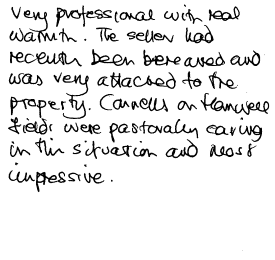 Very professional with real
warmth. The seller had
recently been bereaved and
was very attached to the
property. Connells on Hampton
Fields were pastorally caring
in this situation and most
impressive.